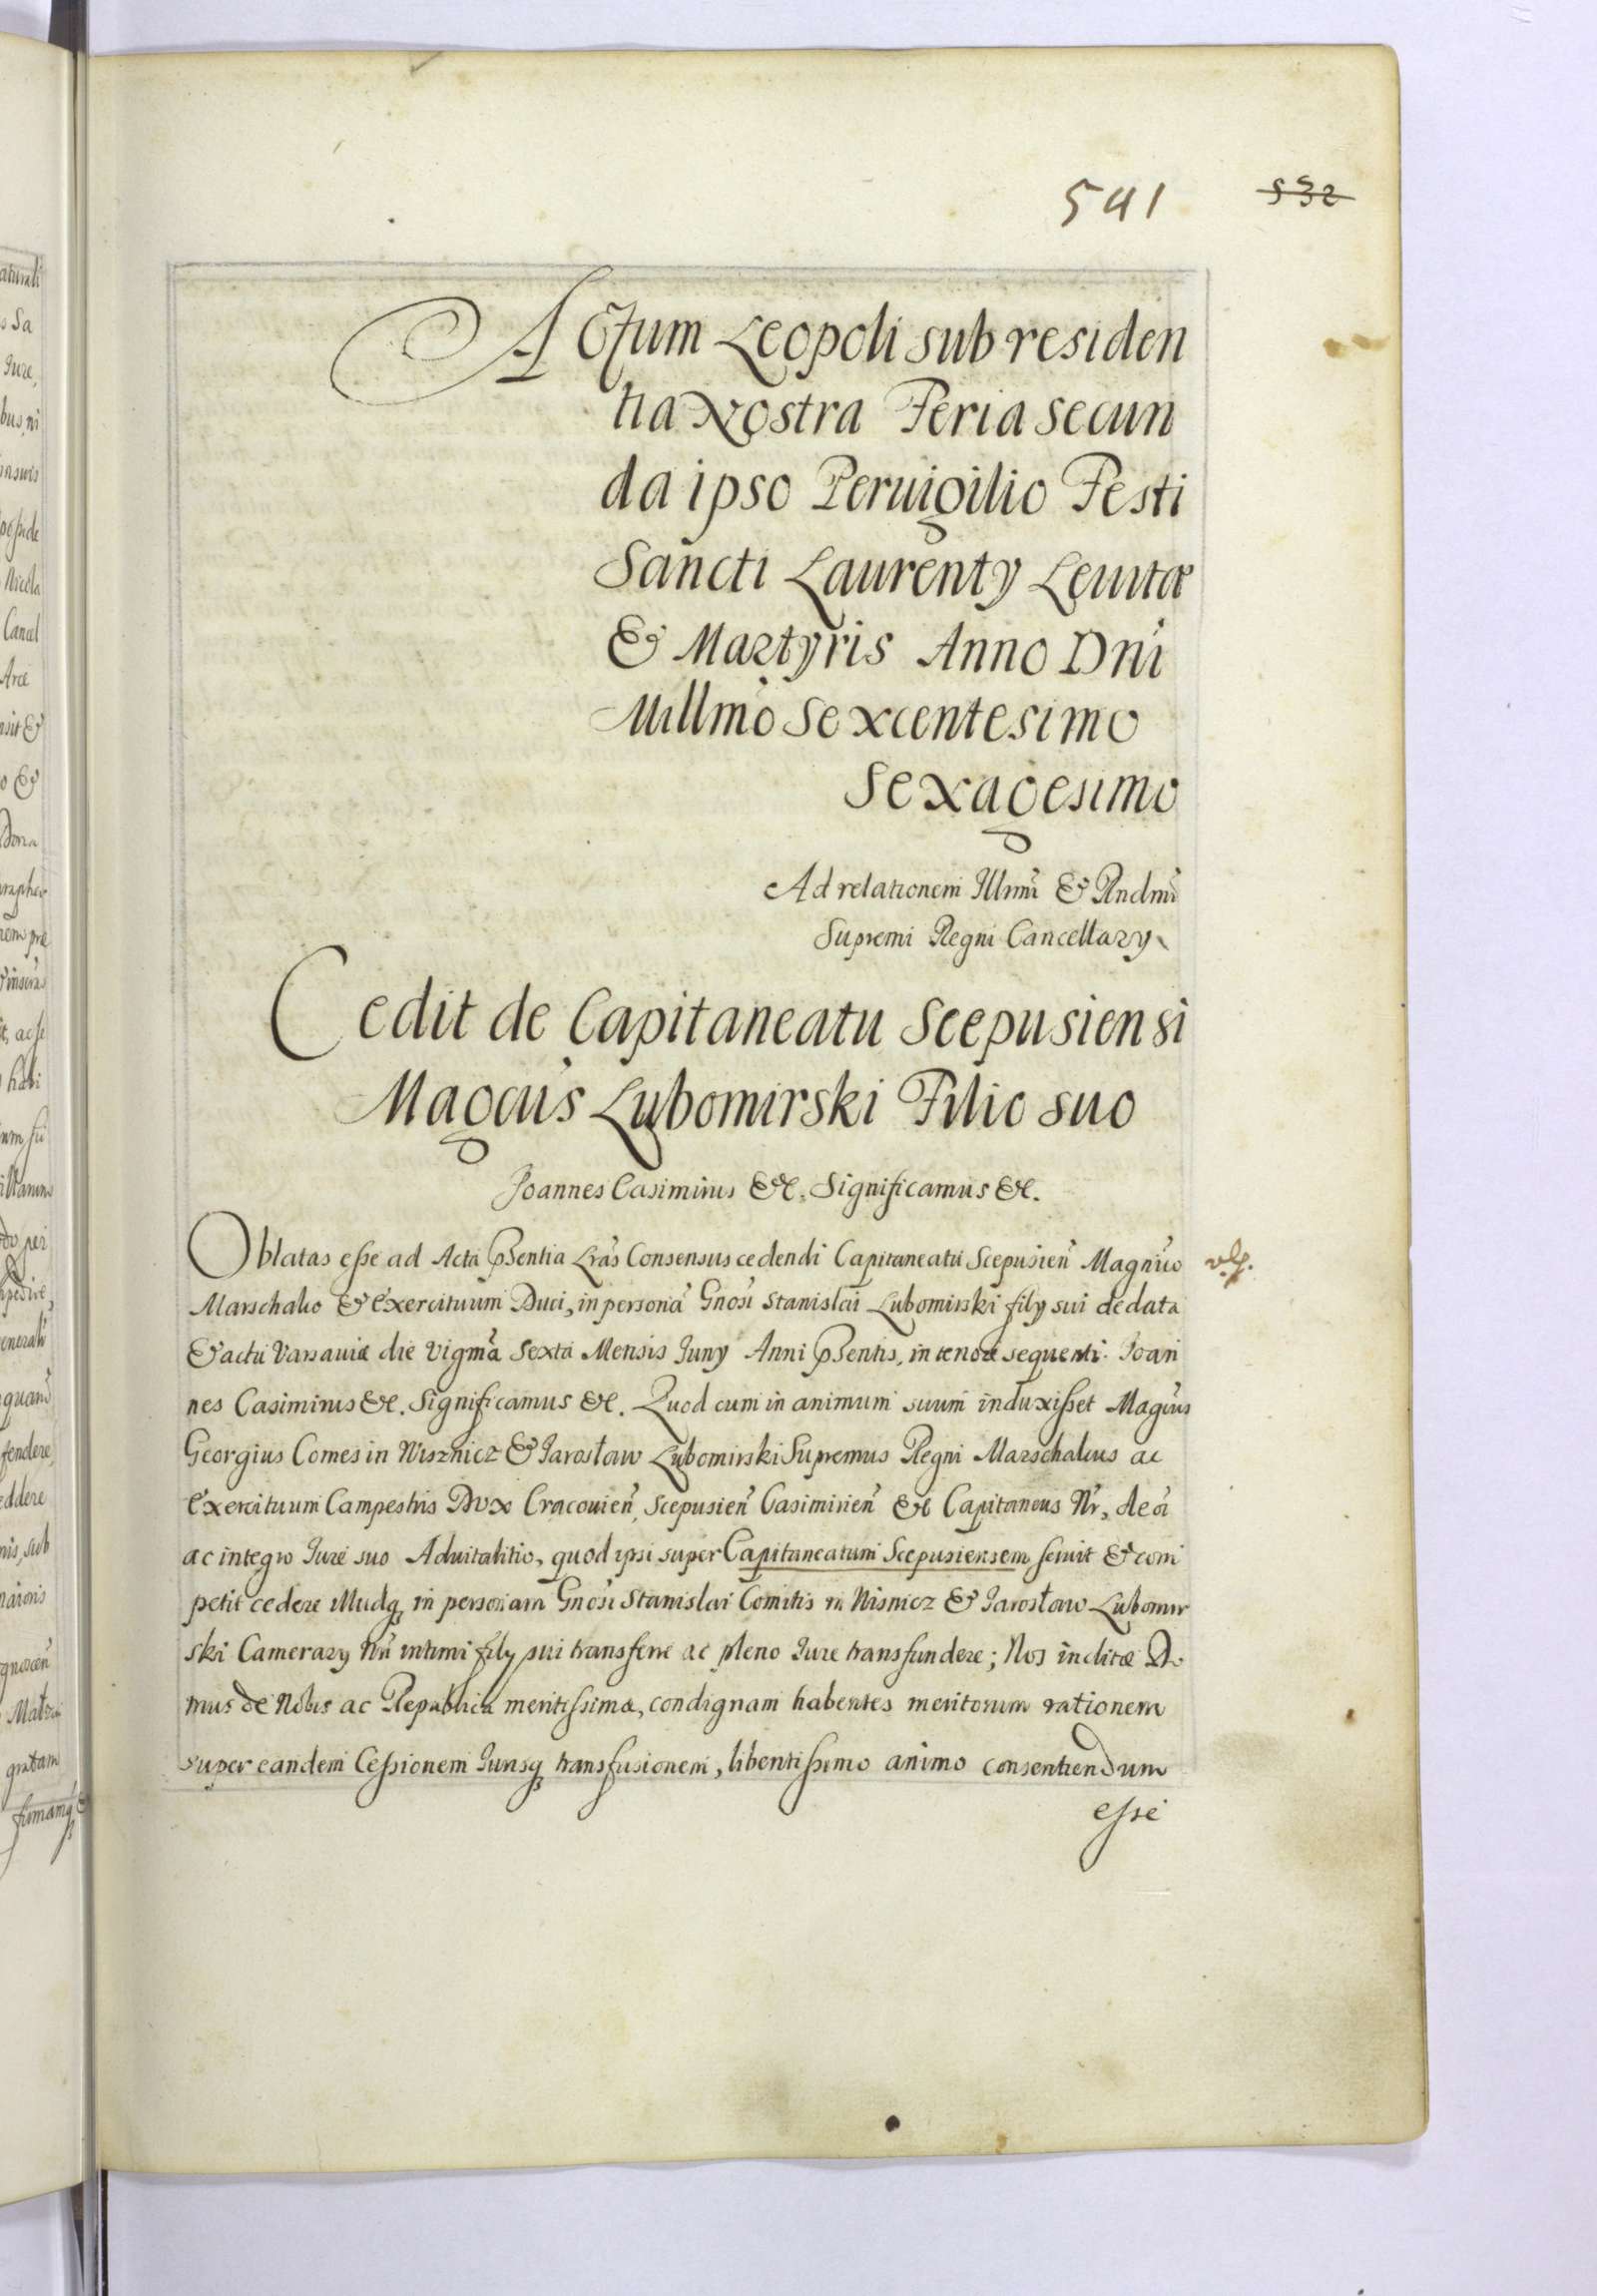 541 532
Actum Leopoli sub residen
tia Nostra Feria secun
da ipso Peruigilio Festi
Sancti Laurenty Leuitæ
& Martyris Anno Dni
Millmo Sexcentesimo
Sexagesimo
Ad relationem Illmi & Rndmi
Supremi Regni Cancellary
Cedit de Capitaneatu Scepusiensi
Magcus Lubomirski Filio suo
Joannes Casimirus &c. Significamus &c.
Oblatas esse ad Acta pñtia Lras Consensus cedendi Capitaneatu Scepusien Magnifico
Marschalco & Exercituum Duci, in persona Gnosi Stanislai Lubomirski fily sui de data
& actu Varsauiæ die vigma sexta Mensis Juny Anni pñtis, in tenore sequenti. Joan
nes Casimirus &c. Significamus &c. Quod cum in animum suum induxisset Magcus
Georgius Comes in Wisznicz & Jarosław Lubomirski Supremus Regni Marschalcus ac
Exercituum Campestris Dux Cracouien, Scepusien Casimirien &c Capitaneus Nr, de eo
ac integro Jure suo Aduitalitio, quod ipsi super Capitaneatum Scepusiensem seruit & com
petit cedere illudq in personam Gnosi Stanislai Comitis in Wisnicz & Jarosław Lubomir
ski Camerary Nri intimi fily sui transferre ac pleno Jure transfundere; Nos inclitæ Do
mus de Nobis ac Republica meritissimæ, condignam habentes meritorum rationem
super eandem Cessionem Jurisq transfusionem, libentissimo animo consentiendum
esse